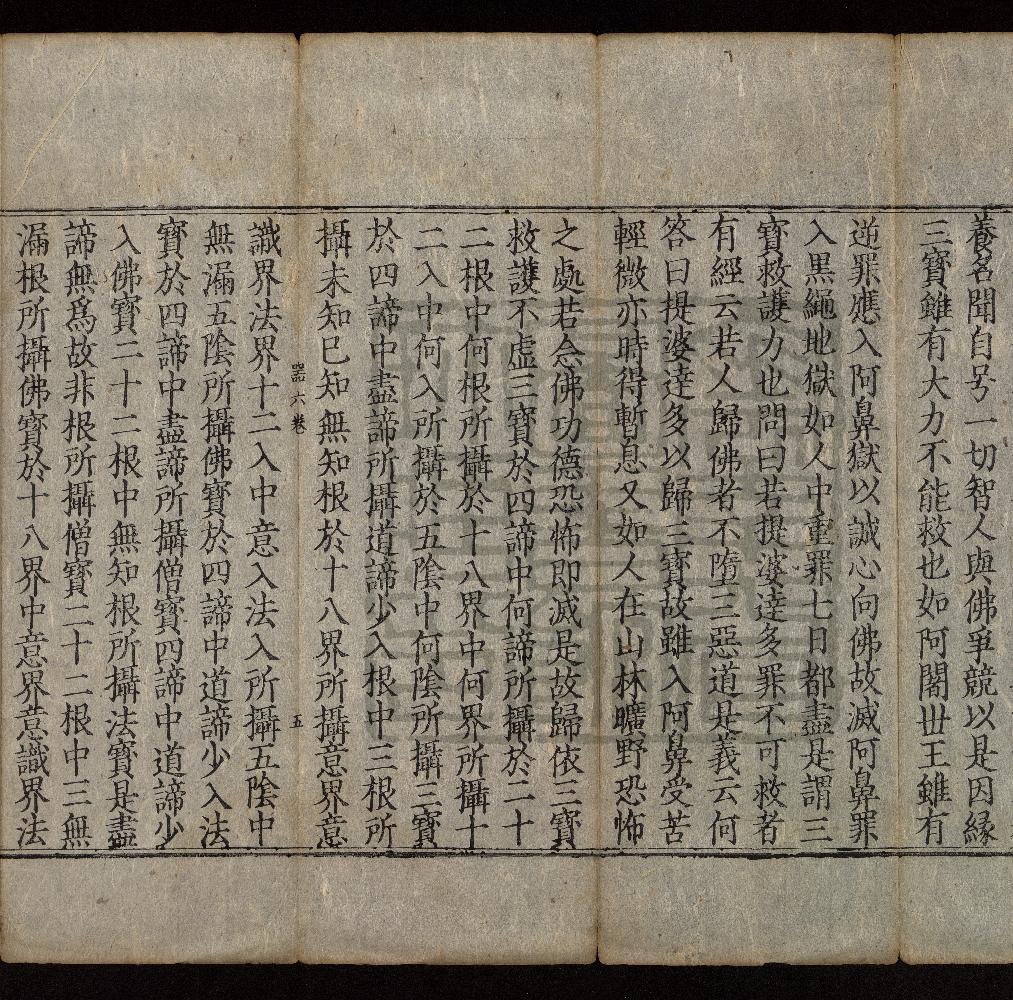 養名聞自号一切智人與佛爭競以是因縁
三寶雖有大力不能救也如阿闍世王雖有
逆罪應入阿鼻獄以誠心向佛故滅阿鼻罪
入黑繩地獄如人中重罪七日都盡是謂三
寶救護力也問曰若提婆達多罪不可救者
有經云若人歸佛者不墮三惡道是義云何
答曰提婆達多以歸三寶故雖入阿鼻受苦
輕微亦時得暫息又如人在山林曠野恐怖
之處若念佛功德恐怖即滅是故歸依三寶
救護不虛三寶於四諦中何諦所攝於二十
二根中何根所攝於十八界中何界所攝十
二入中何入所攝於五陰中何陰所攝三寶
於四諦中盡諦所攝道諦少入根中三根所
攝未知已知無知根於十八界所攝意界意
器六卷 五
識界法界十二入中意入法入所攝五陰中
無漏五陰所攝佛寶於四諦中道諦少入法
寶於四諦中盡諦所攝僧寶四諦中道諦少
入佛寶二十二根中無知根所攝法寶是盡
諦無為故非根所攝僧寶二十二根中三無
漏根所攝佛寶於十八界中意界意識界法